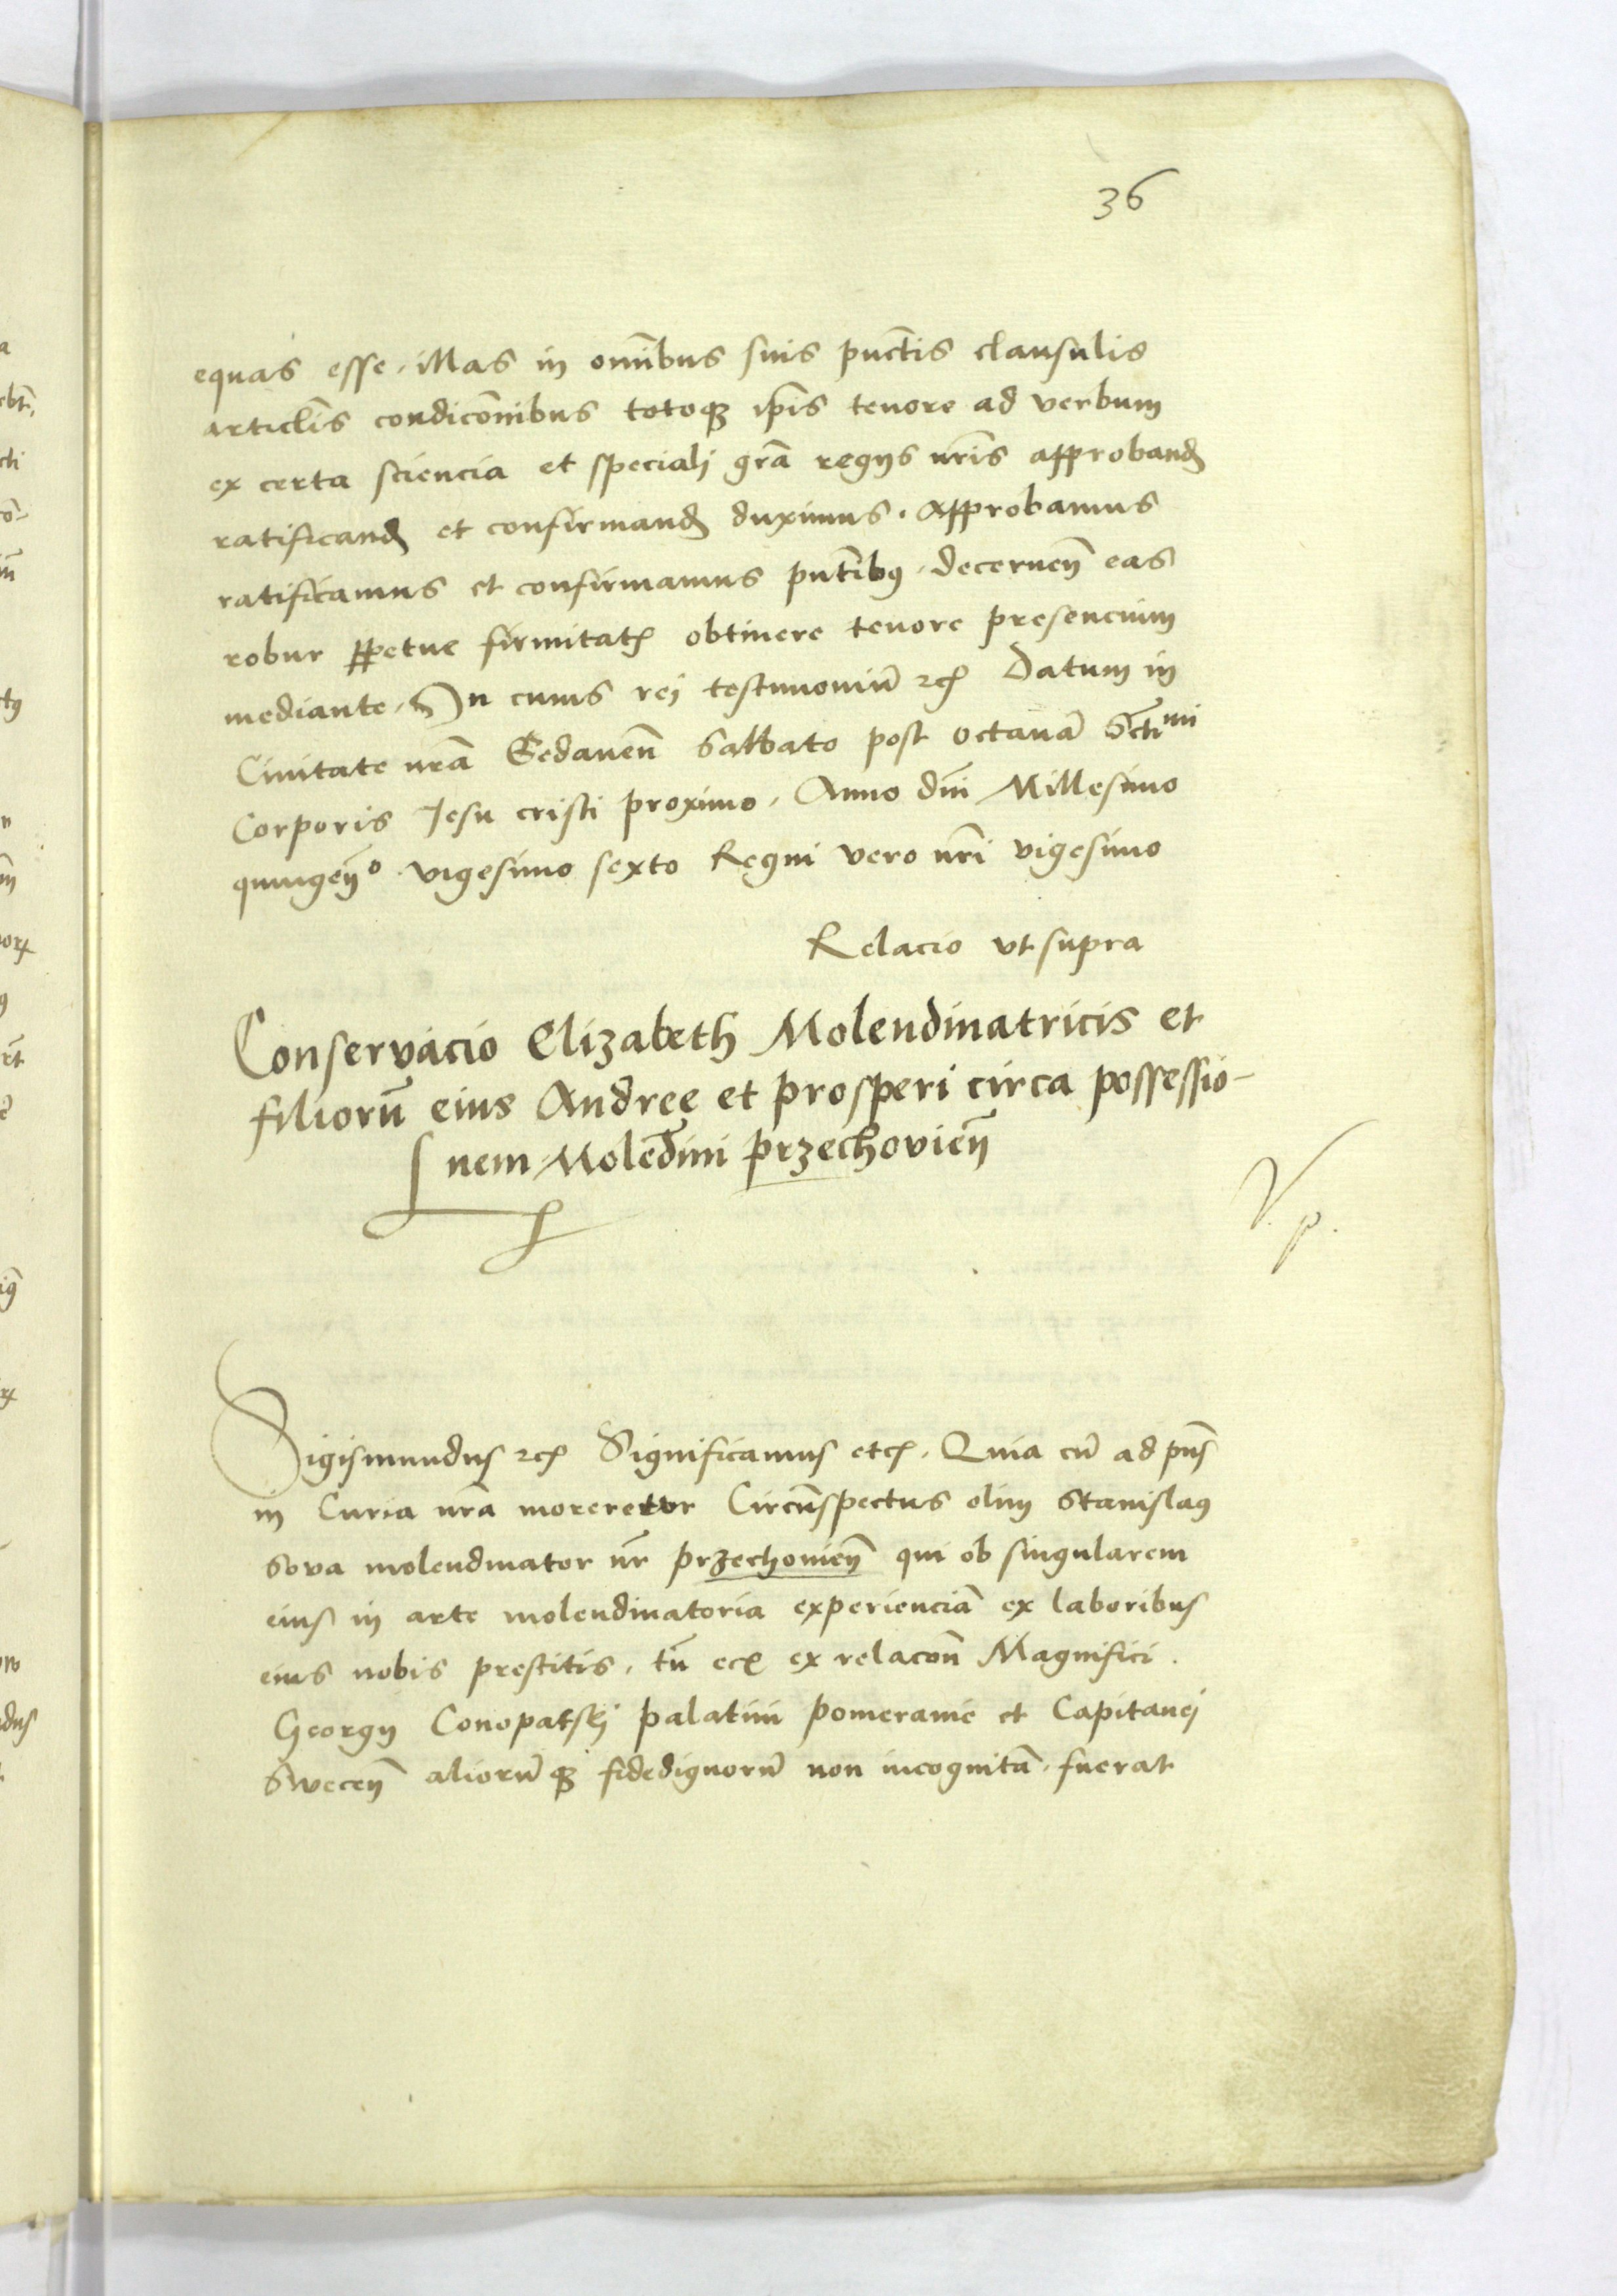 36
equas esse. illas in om̄ibus suis pūctis clausulis
articl̄is condicōnibus totoqꝫ ip̄is tenore ad verbum
ex certa sciencia et specialj gr̄a regijs nr̄is approband̄
ratificand̄ et confirmand̄ duximus. Approbamus
ratificamus et confirmamus pn̄tibꝰ. decernen̄ eas
robur ꝑpetue firmitatꝭ obtinere tenore presencium
mediante. In cuius rej testimoniū ꝛcꝭ Datum in
Ciuitate nr̄a Gedanen̄ Sabbato post octauā Sc̄tiᵐⁱ
Corporis Jesu cristi proximo. Anno dn̄i Millesimo
quingen̄º vigesimo sexto Regni vero nr̄i vigesimo
Relacio vt supra
Conservacio Elizabeth Molendinatricis et
filiorū eius Andree et prosperi circa possessio-
nem Molēdini przechovien̄
V. p.
Sigismundus ꝛcꝭ Significamus etcꝭ. Quia cū ad pn̄s
in Curia nr̄a moreretvr Circūspectus olim Stanislaꝰ
Sova molendinator nr̄ przechouien̄ qui ob singularem
eius in arte molendinatoria experienciā ex laboribus
eius nobis prestitis. tū ecꝭ ex relacōn Magnifici.
Georgij Conopatskj palatini pomeranie et Capitanej
Swecen̄ aliorūqꝫ fidedignorū non incognitā. fuerat